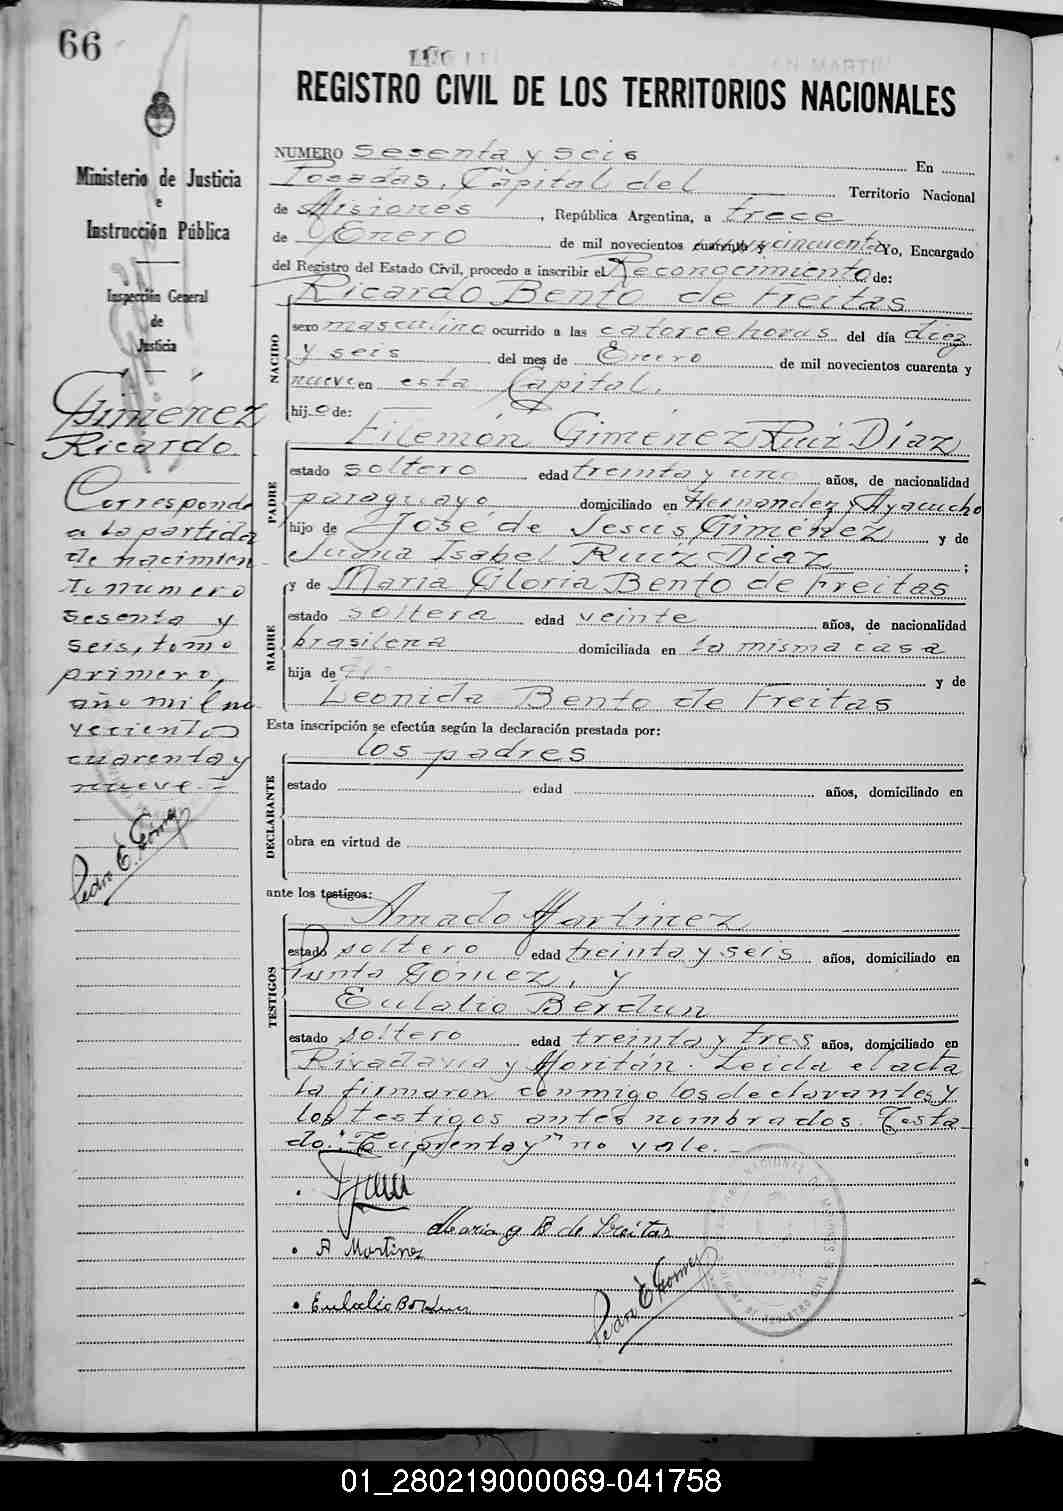 66
REGISTRO CIVIL DE LOS TERRITORIOS NACIONALES
Ministerio de Justicia
e
Instrucción Pública
Inspección General
de
Justicia
Giménez
Ricardo
Corresponde
a la partida
de nacimien-
to numero
sesenta y
seis, tomo
primero,
año mil no-
vecientos
cuarenta y
nueve.-
Pedro E. Gómez
NUMERO sesenta y seis En
Posadas, Capital del Territorio Nacional
de Misiones, República Argentina, a trece
de Enero de mil novecientos cuarenta y cincuenta Yo, Encargado
del Registro del Estado Civil, procedo a inscribir el Reconocimiento de:
NACIDO
Ricardo Bento de Freitas
sexo masculino ocurrido a las catorce horas del día diez
y seis del mes de Enero de mil novecientos cuarenta y
nueve en esta Capital.
hij o de:
PADRE
Filemón Giménez Ruiz Díaz
estado soltero edad treinta y uno años, de nacionalidad
paraguayo domiciliado en Hernandez y Ayacucho
hijo de José de Jesús Giménez y de
Juana Isabel Ruiz Diaz ;
MADRE
y de María Gloria Bento de Freitas
estado soltera edad veinte años, de nacionalidad
brasilena domiciliada en la misma casa
hija de y de
Leonida Bento de Freitas
Esta inscripción se efectúa según la declaración prestada por:
los padres
DECLARANTE
estado edad años, domiciliado en
obra en virtud de
ante los testigos:
TESTIGOS
Amado Martinez
estado soltero edad treinta y seis años, domiciliado en
Punta Gómez, y
Eulalio Berdun
estado soltero edad treinta y tres años, domiciliado en
Rivadavia y Moritán. Leida el acta
la firmaron conmigo los declarantes y
los testigos antes nombrados. Testa-
do: "Cuarenta y" no vale.-
Maria g B de Freitas
A Martinez
Eulalio Berdun
Pedro E Gomez
01_280219000069-041758